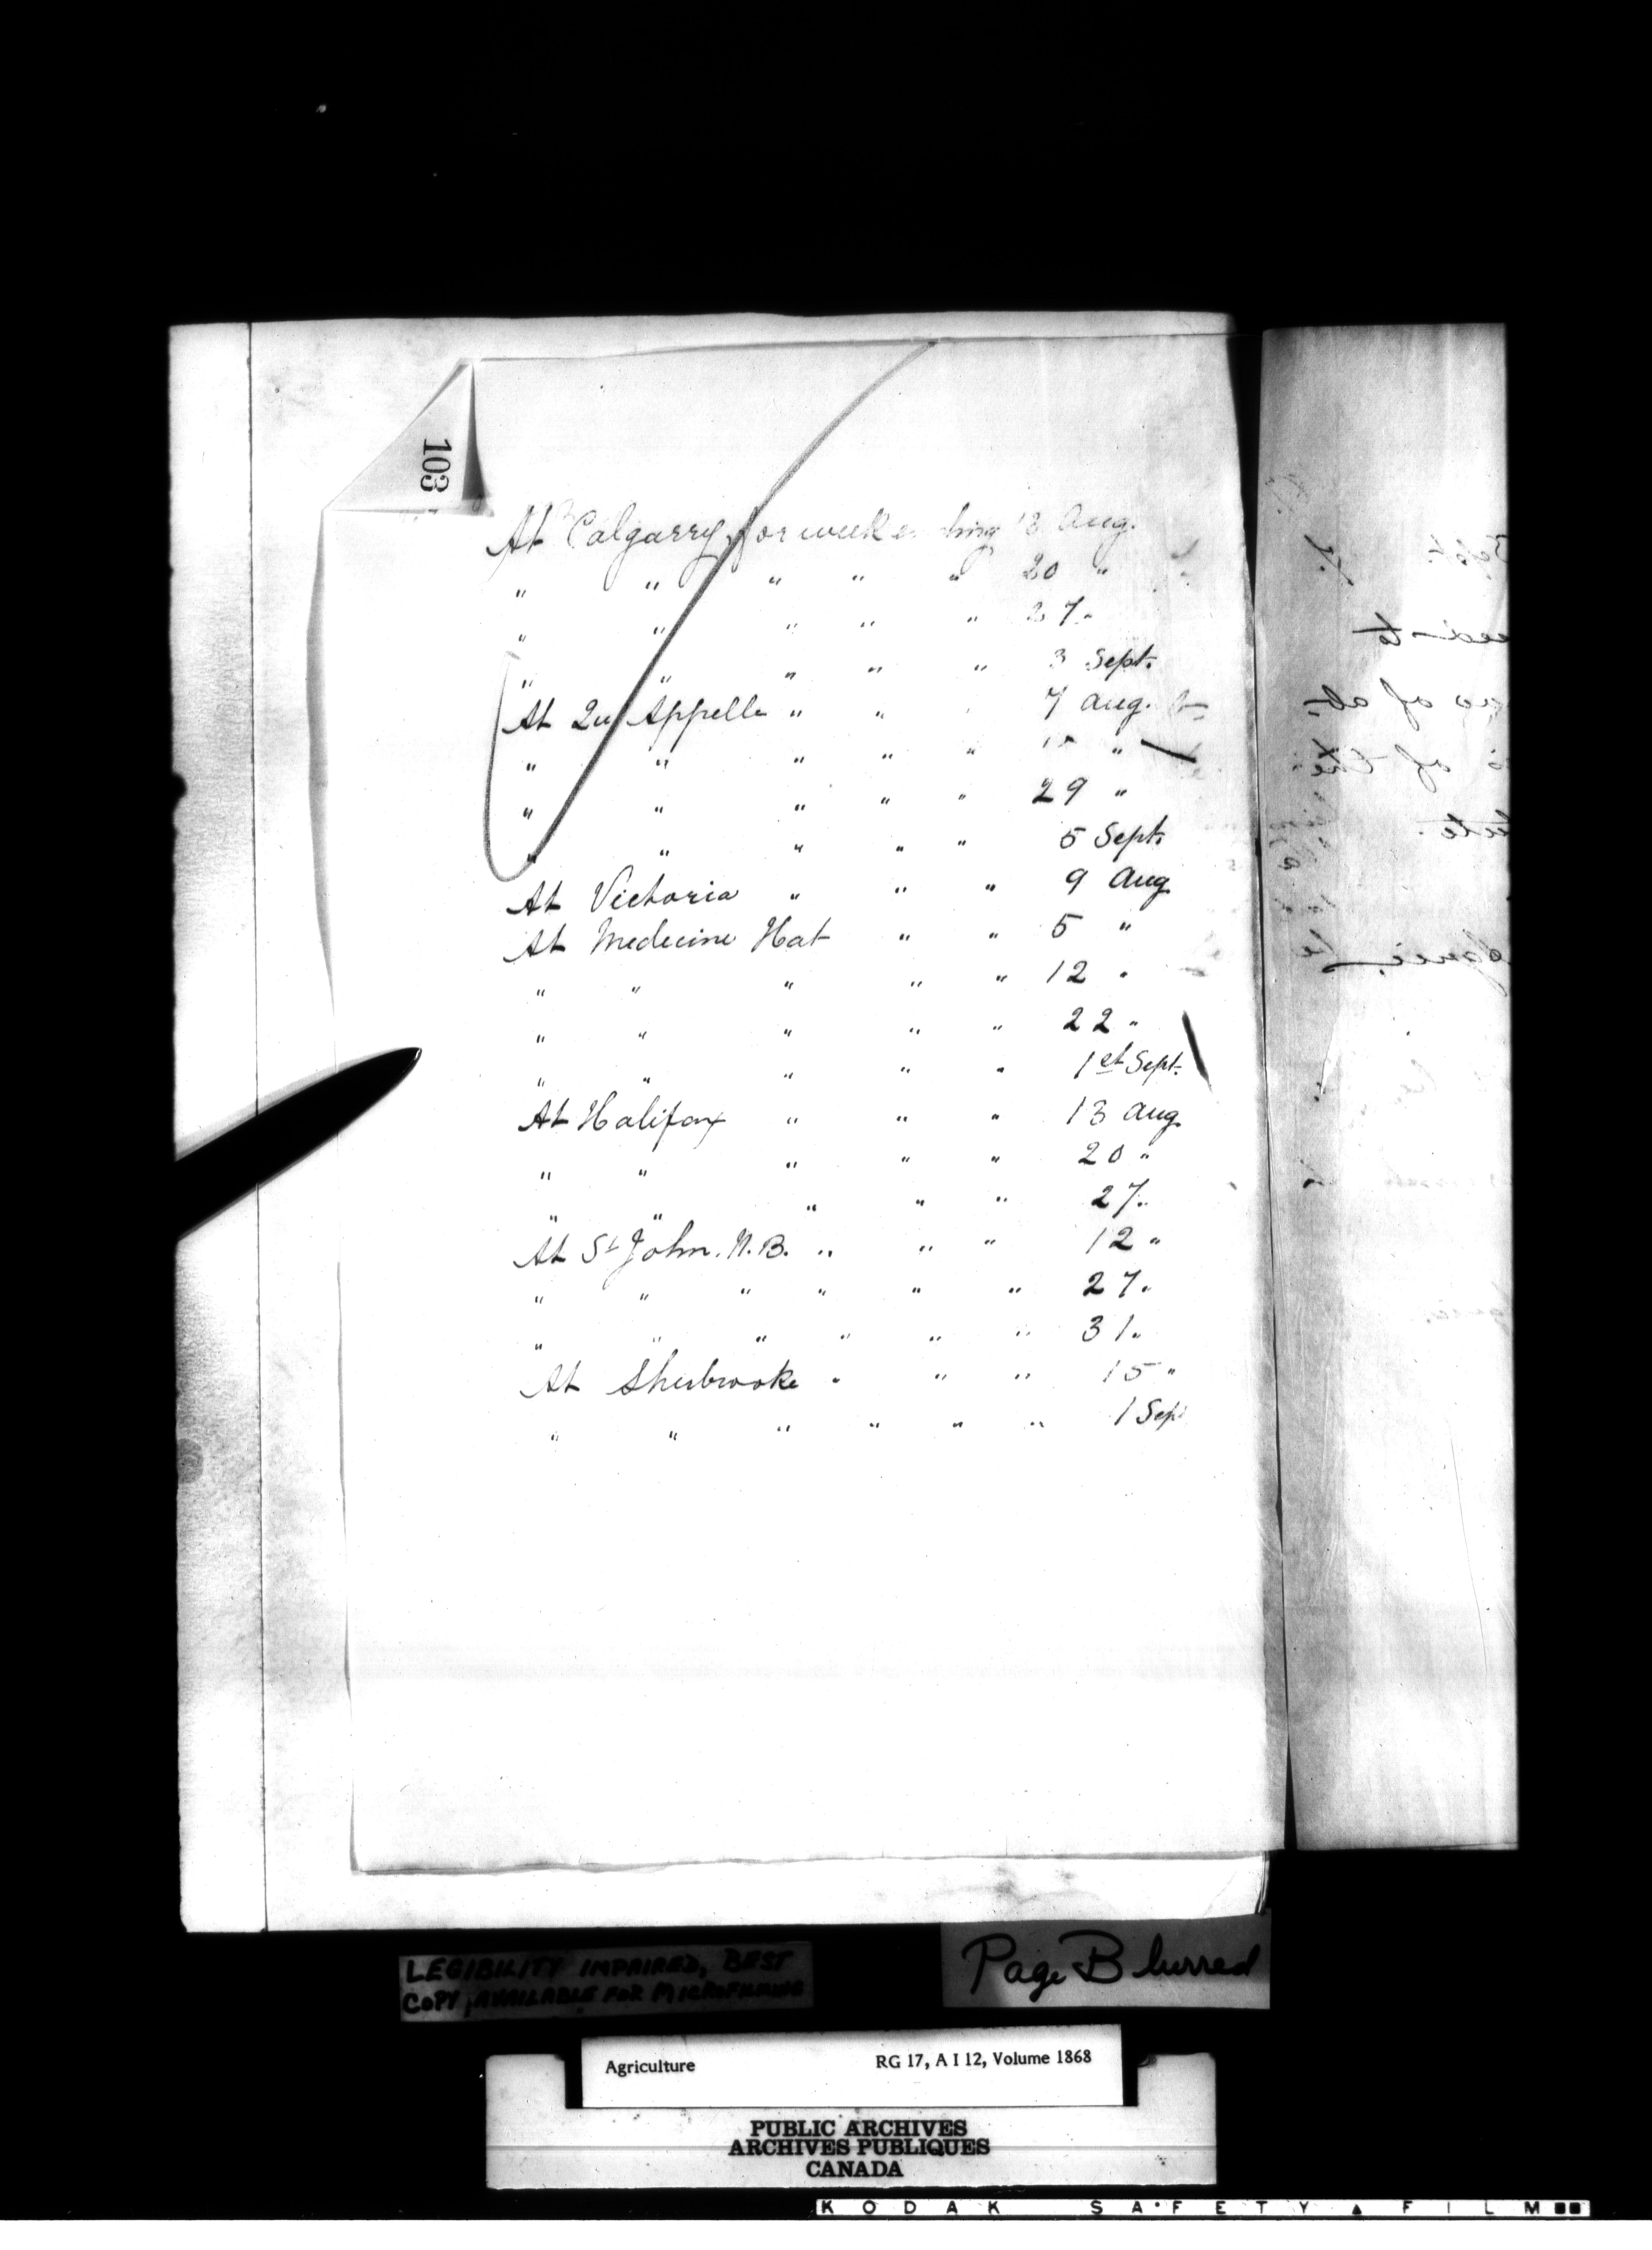 103
At Calgarry for week ending 13 Aug.
" " " " " 20 "
" " " " " 27 "
" " " " " 3 Sept.
At Qu Appelle " " " 7 Aug.
" " " " " "
" " " " " 29 "
" " " " " 5 Sept.
At Victoria " " " 9 Aug
At Medecine Hat " " 5 "
" " " " " 12 "
" " " " " 22 "
" " " " " 1st Sept.
At Halifax " " " 13 Aug
" " " " " 20 "
" " " " " 27 "
At St John. N.B. " " " 12 "
" " " " " " 27 "
" " " " " " 31 "
At Sherbrooke " " " 15 "
" " " " " " 1 Sep
LEGIBILITY IMPAIRED, BEST
COPY AVAILABLE FOR MICROFILMING
Page Blurred
Agriculture RG 17, A I 12, Volume 1868
PUBLIC ARCHIVES
ARCHIVES PUBLIQUES
CANADA
KODAK SAFETY ▲ FILM